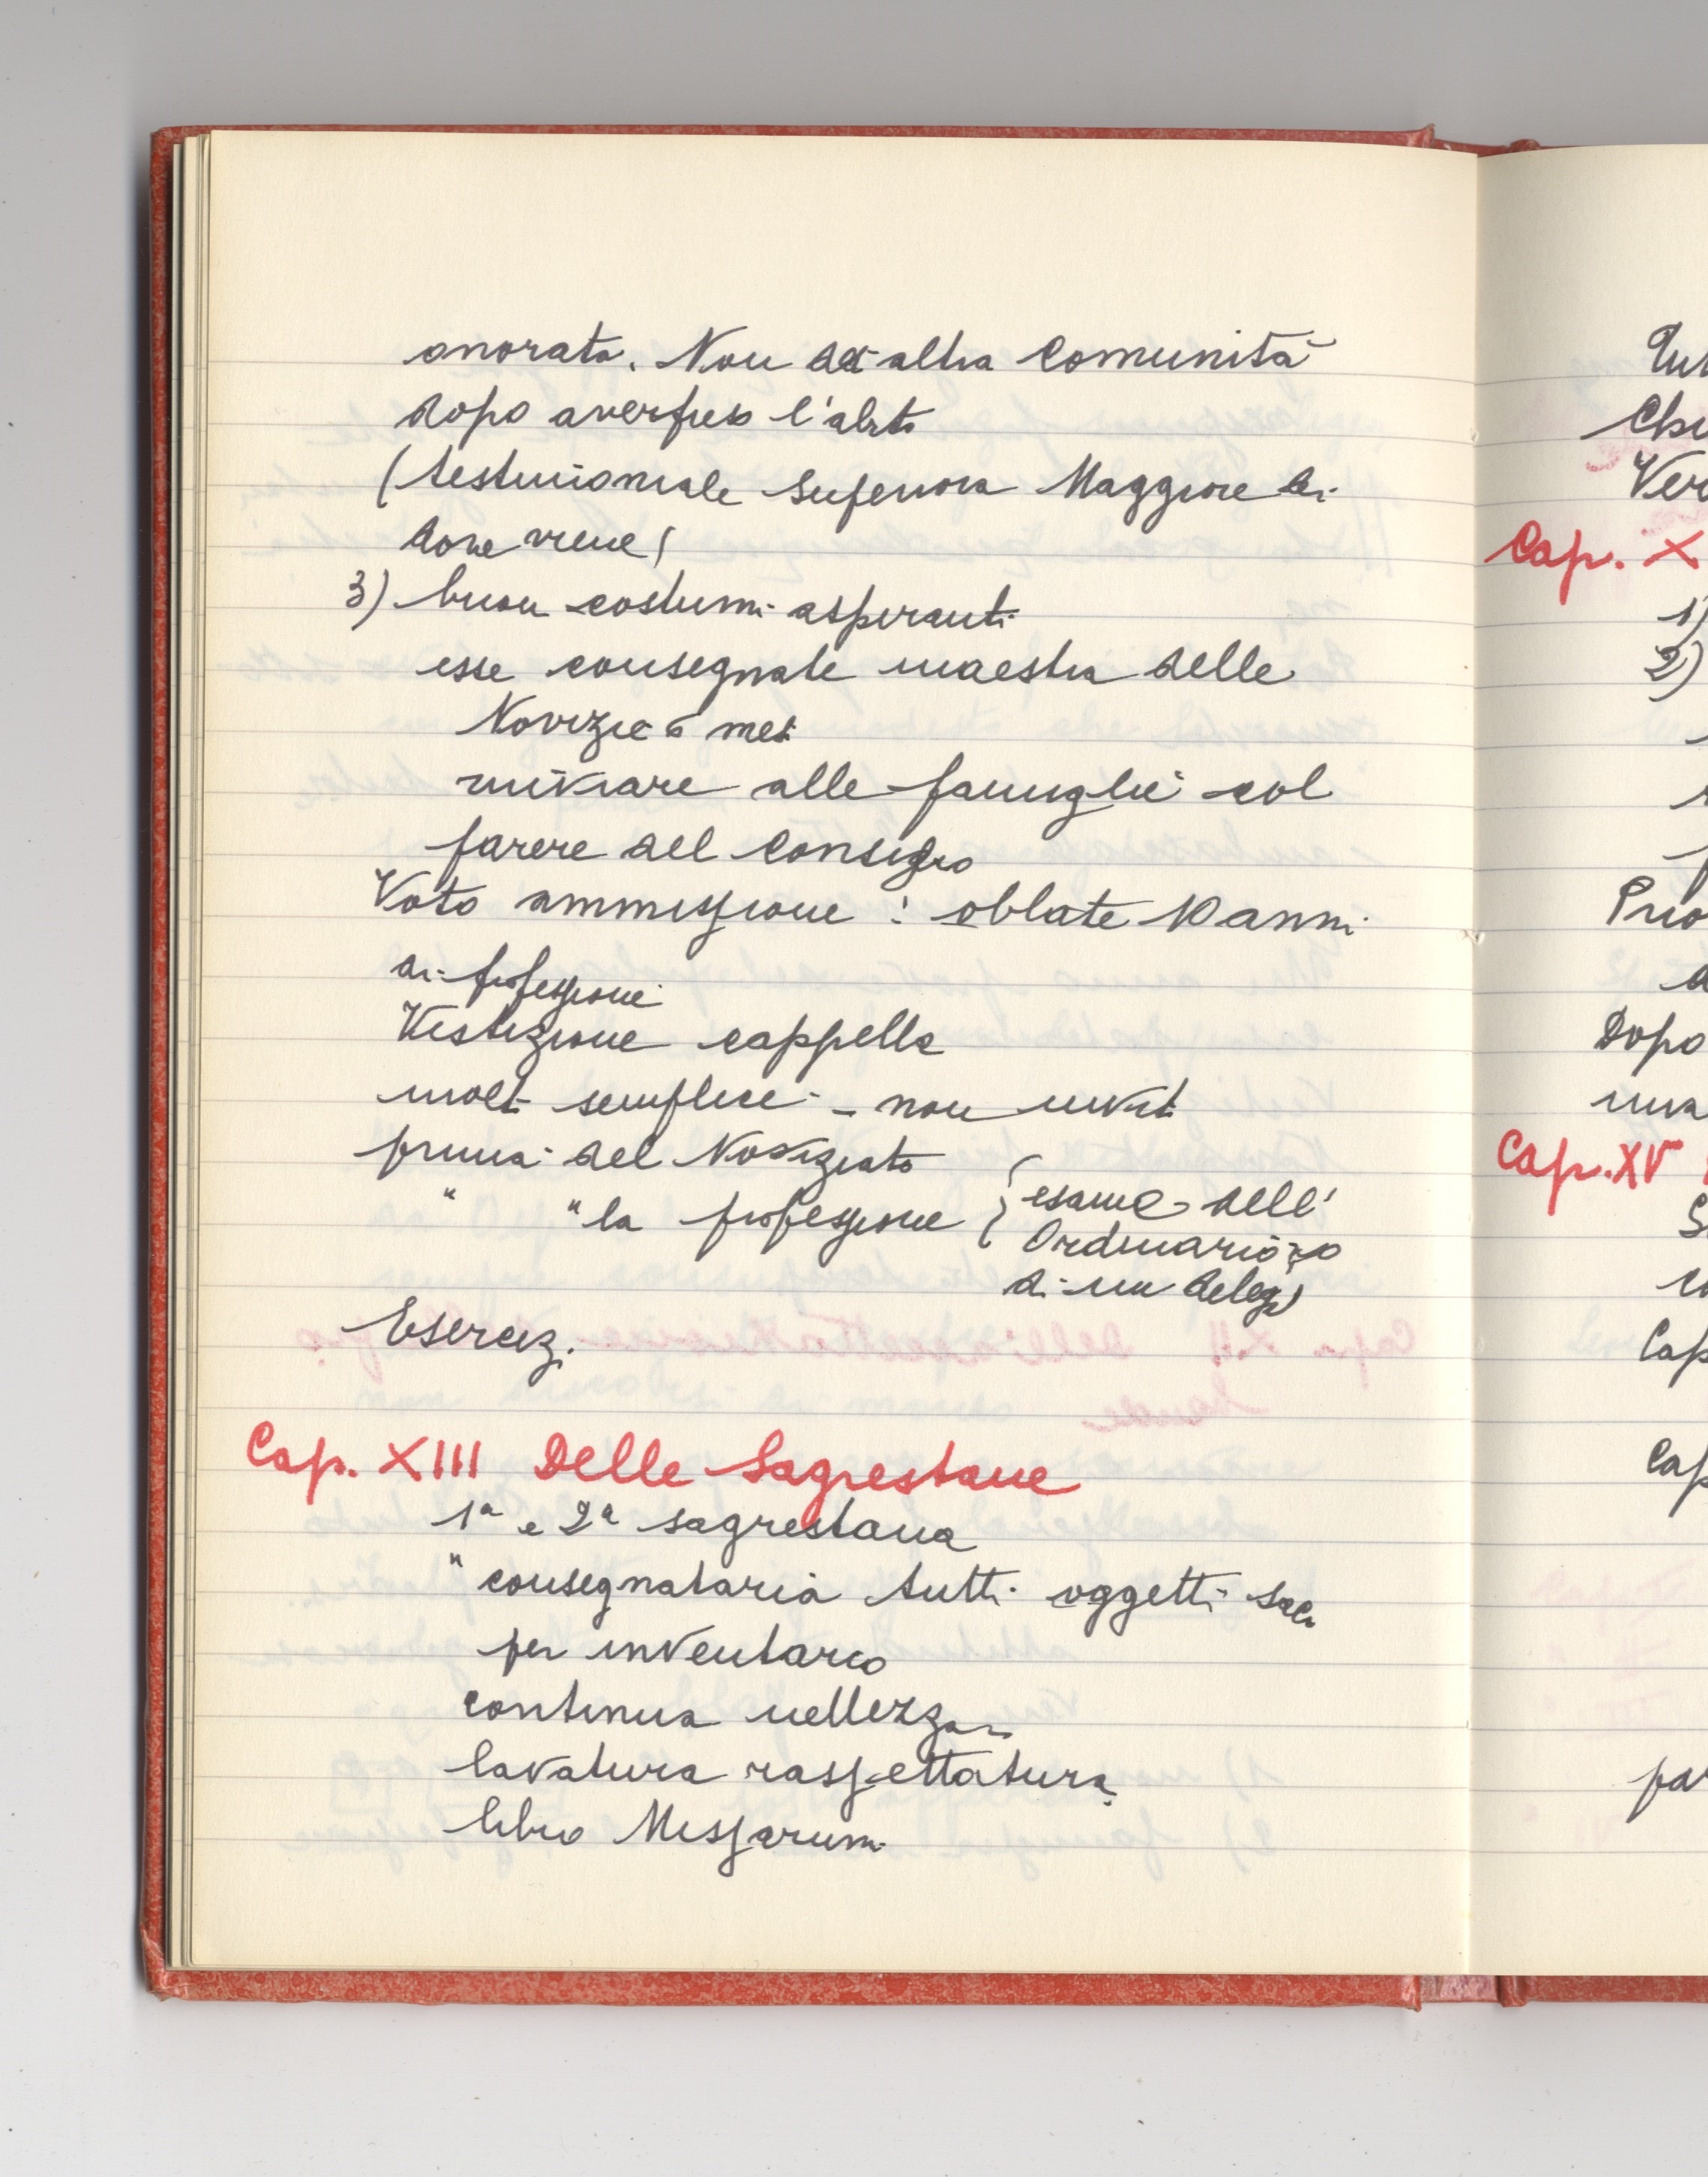 onorata. Non da altra Comunità
dopo aver preso l'abito
(testimoniale Superiora Maggiore di
dove viene)
3) buoni costumi aspiranti
esse consegnate maestra delle
Novizie 6 mesi
inviare alle famiglie col
parere del Consiglio
Voto ammissione : oblate 10 anni
di professione
Vestizione cappella
molt semplice - non invit
prima del Noviziato
" " la professione { esame dell'
Ordinario o
di un deleg)
Eserciz.
Cap. XIII Delle Sagrestane
1ª e 2ª sagrestana
" consegnataria tutti oggetti sacri
per inventario
continua nettezza
lavatura rassettatura
libro Missarum
Cap. X
1)
2)
Dopo
Cap. XV
Cap
Cap